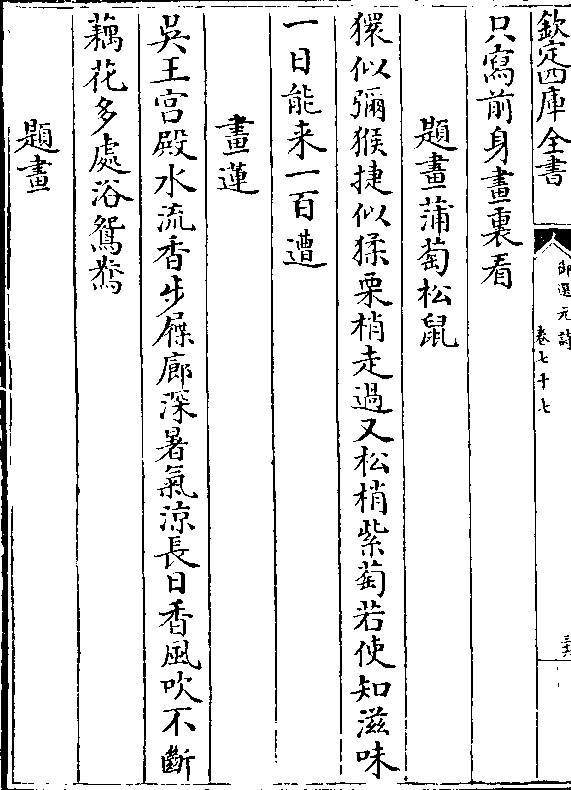 欽定四庫全書
御選元詩
卷七十七
只寫前身畫裏看
題畫蒲萄松鼠
猱似獼猴捷似猱栗梢走過又松梢紫萄若使知滋味
一日能来一百遭
畫蓮
吳王宫殿水流香步屧廊深暑氣涼長日香風吹不斷
藕花多處浴鴛鴦
題畫